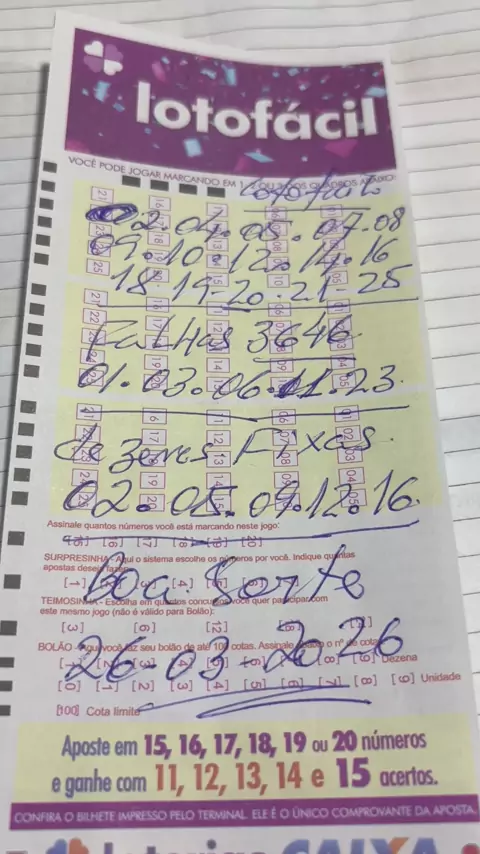 lotofácil
VOCÊ PODE JOGAR MARCANDO EM 1, 2 OU 3 DOS QUADROS ABAIXO:
Lotofacil
02.04.05.07.08
09.10.12.14.16
18.19-20.21.25
Falhas 3646
01.03.06.11.23.
dezenas Fixas.
02.05.09.12.16.
Assinale quantos números você está marcando neste jogo:
SURPRESINHA - Aqui o sistema escolhe os números por você. Indique quantas
apostas deseja fazer:
Boa Sorte
TEIMOSINHA - Escolha em quantos concursos você quer participar com
este mesmo jogo (não é válido para Bolão):
[3] [6] [12]
26-03-2026
BOLÃO - Aqui você faz seu bolão de até 100 cotas. Assinale abaixo o nº de cotas
Dezena
[0] [1] [2] [3] [4] [5] [6] [7] [8] [9] Unidade
[100] Cota limite
Aposte em 15, 16, 17, 18, 19 ou 20 números
e ganhe com 11, 12, 13, 14 e 15 acertos.
CONFIRA O BILHETE IMPRESSO PELO TERMINAL. ELE É O ÚNICO COMPROVANTE DA APOSTA.
loterias CAIXA